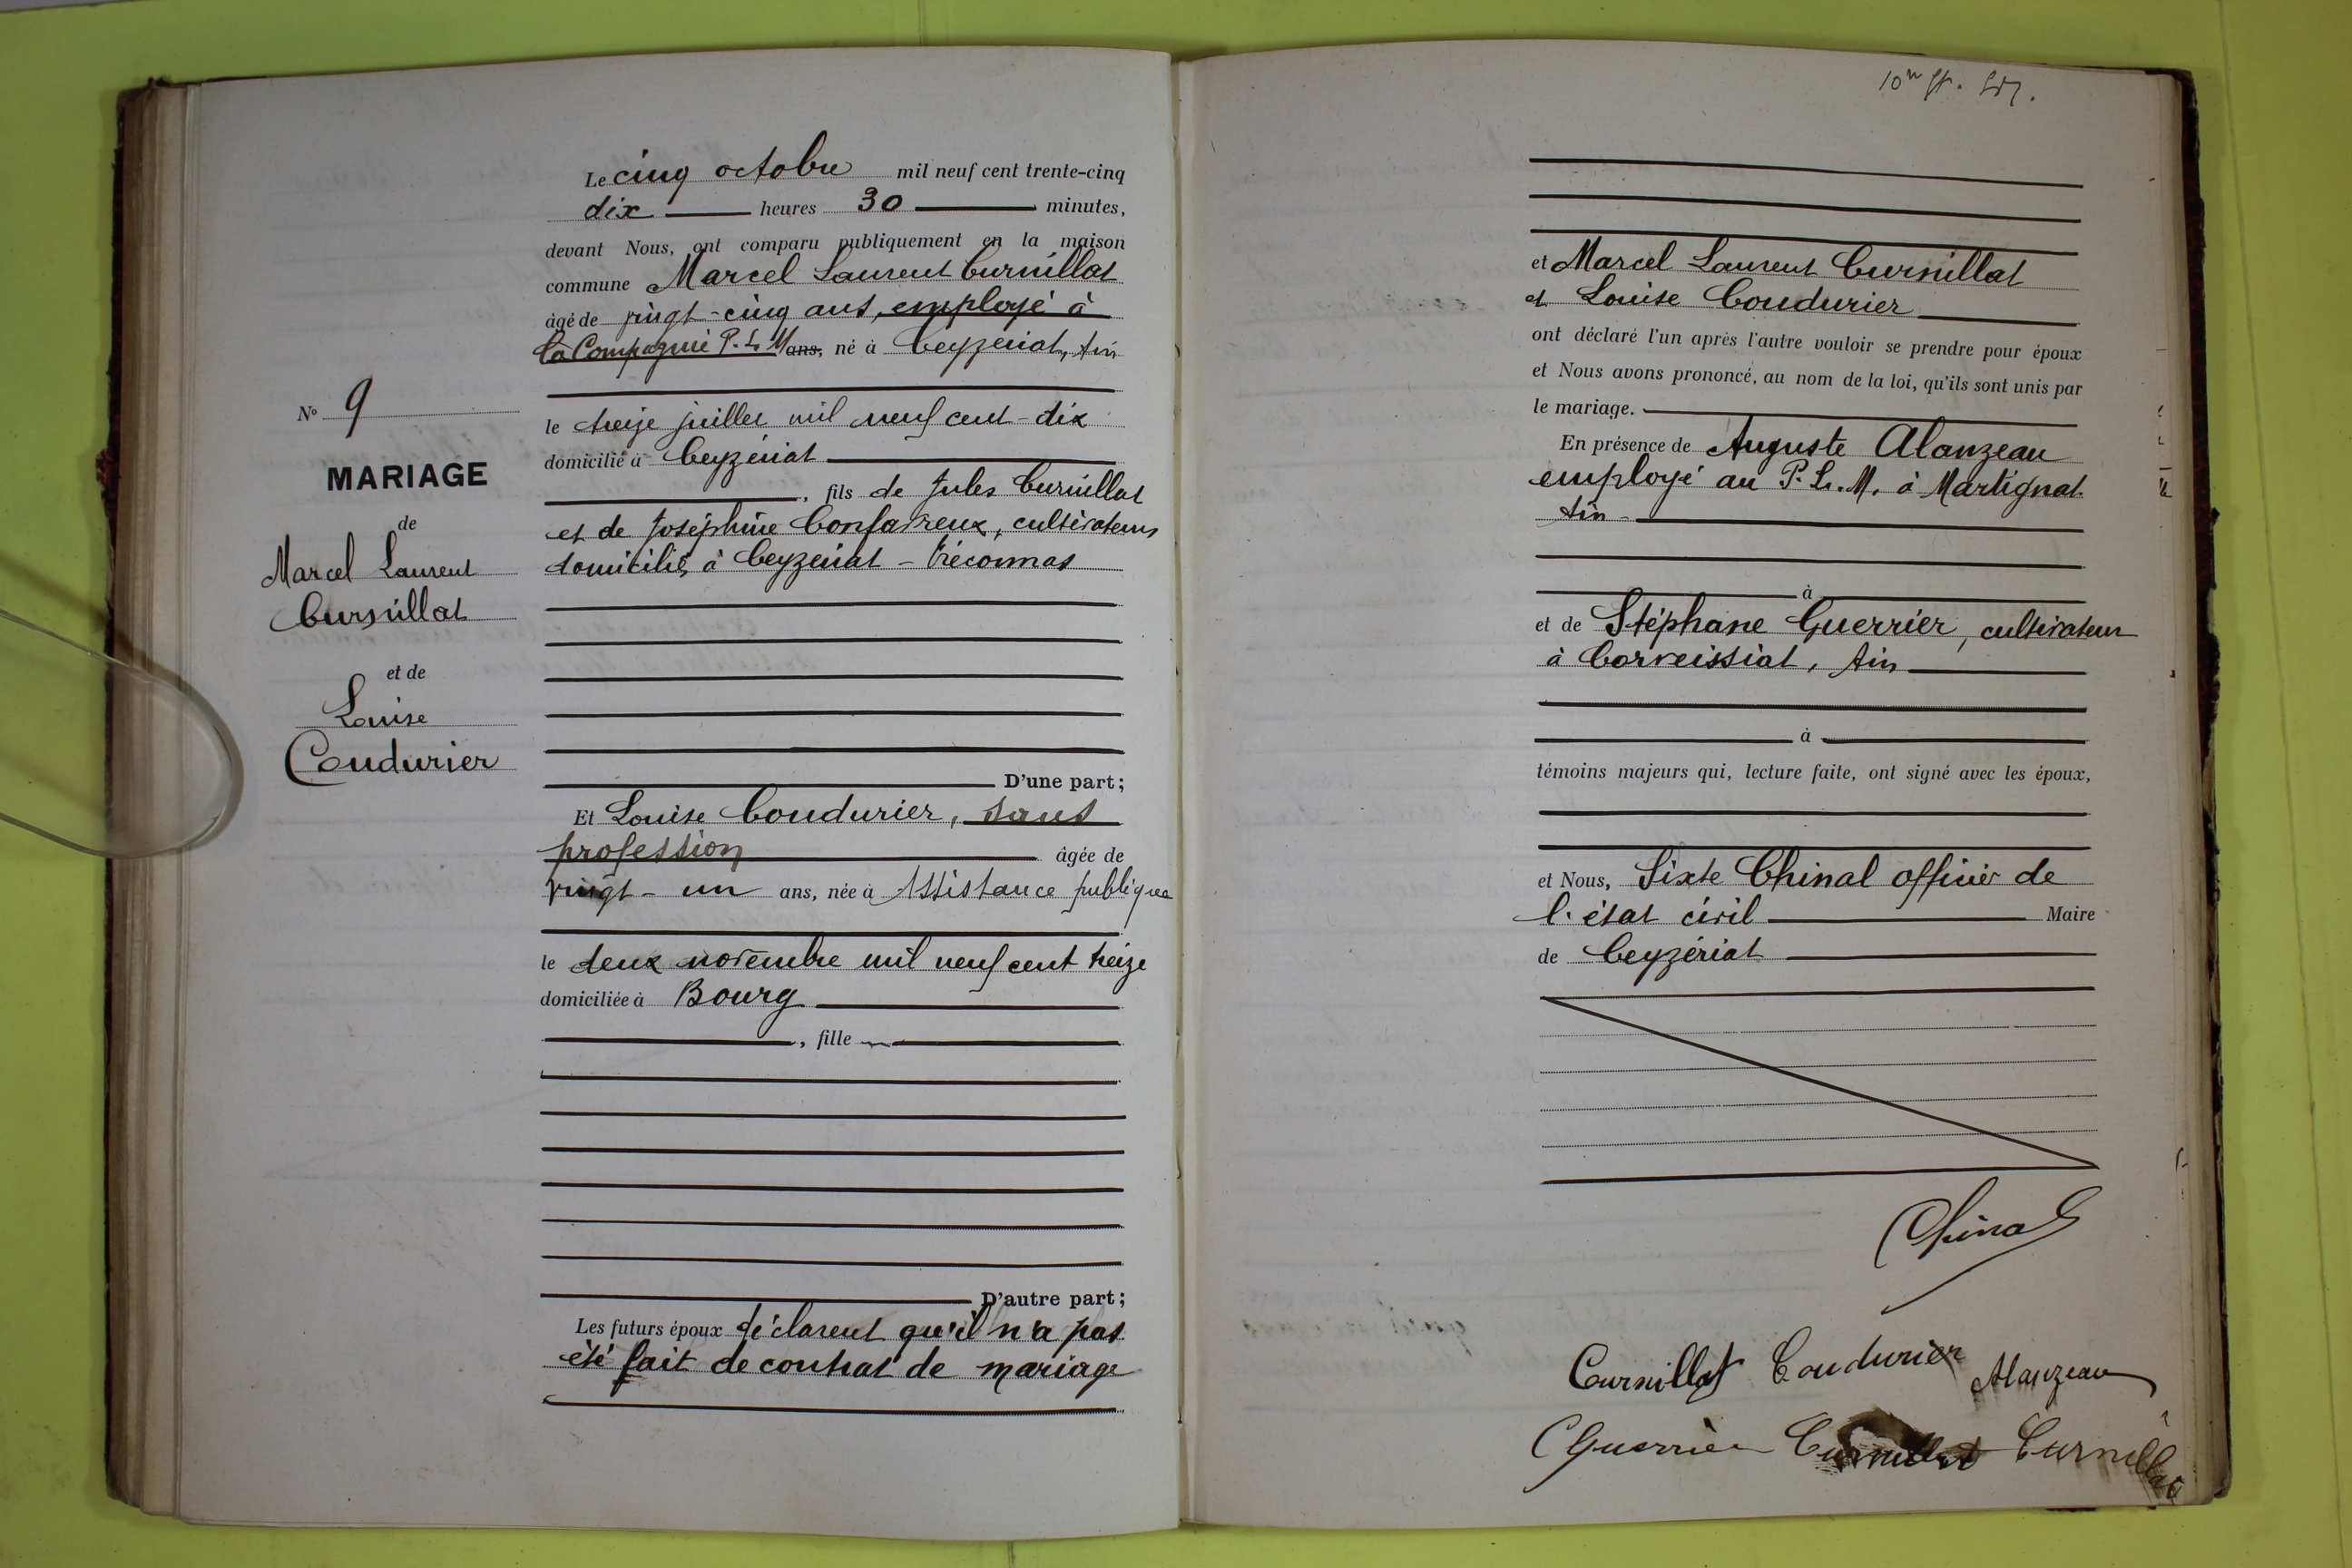 Le cinq octobre mil neuf cent trente-cinq
dix heures 30 minutes,
devant Nous, ont comparu publiquement en la maison
commune Marcel Laurent Curnillat
âgé de vingt-cinq ans, employé à
la Compagnie P.L.M ans, né à Ceyzeriat, Ain
le treize juillet mil neuf cent-dix
domicilié à Ceyzériat
, fils de Jules Curnillat
et de Joséphine Confavreux, cultivateurs
domiciliés à Ceyzeriat - Tréconnas
D'une part;
Et Louise Coudurier, sans
profession âgée de
vingt-un ans, née à Assistance publique
le deux novembre mil neuf cent treize
domiciliée à Bourg
, fille
D'autre part;
Les futurs époux déclarent qu'il n'a pas
été fait de contrat de mariage
No 9
MARIAGE
de
Marcel Laurent
Curnillat
et de
Louise
Coudurier
et Marcel Laurent Curnillat
et Louise Coudurier
ont déclaré l'un après l'autre vouloir se prendre pour époux
et Nous avons prononcé, au nom de la loi, qu'ils sont unis par
le mariage.
En présence de Auguste Alanzeau
employé au P.L.M. à Martignat
Ain
à
et de Stéphane Guerrier, cultivateur
à Corveissiat, Ain
à
témoins majeurs qui, lecture faite, ont signé avec les époux,
et Nous, Sixte Chinal officier de
l'état civil Maire
de Ceyzériat
Chinal
Curnillat Coudurier Alanzeau
Guerrier Curnillat Curnillat